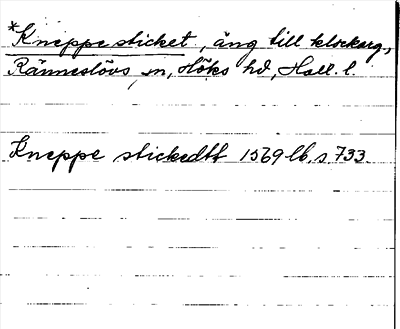 *Kneppesticket, äng till klockarg,
Ränneslövs sn, Höks hd, Hall. l.
Kneppe stickedtt 1569 lb. s 733.